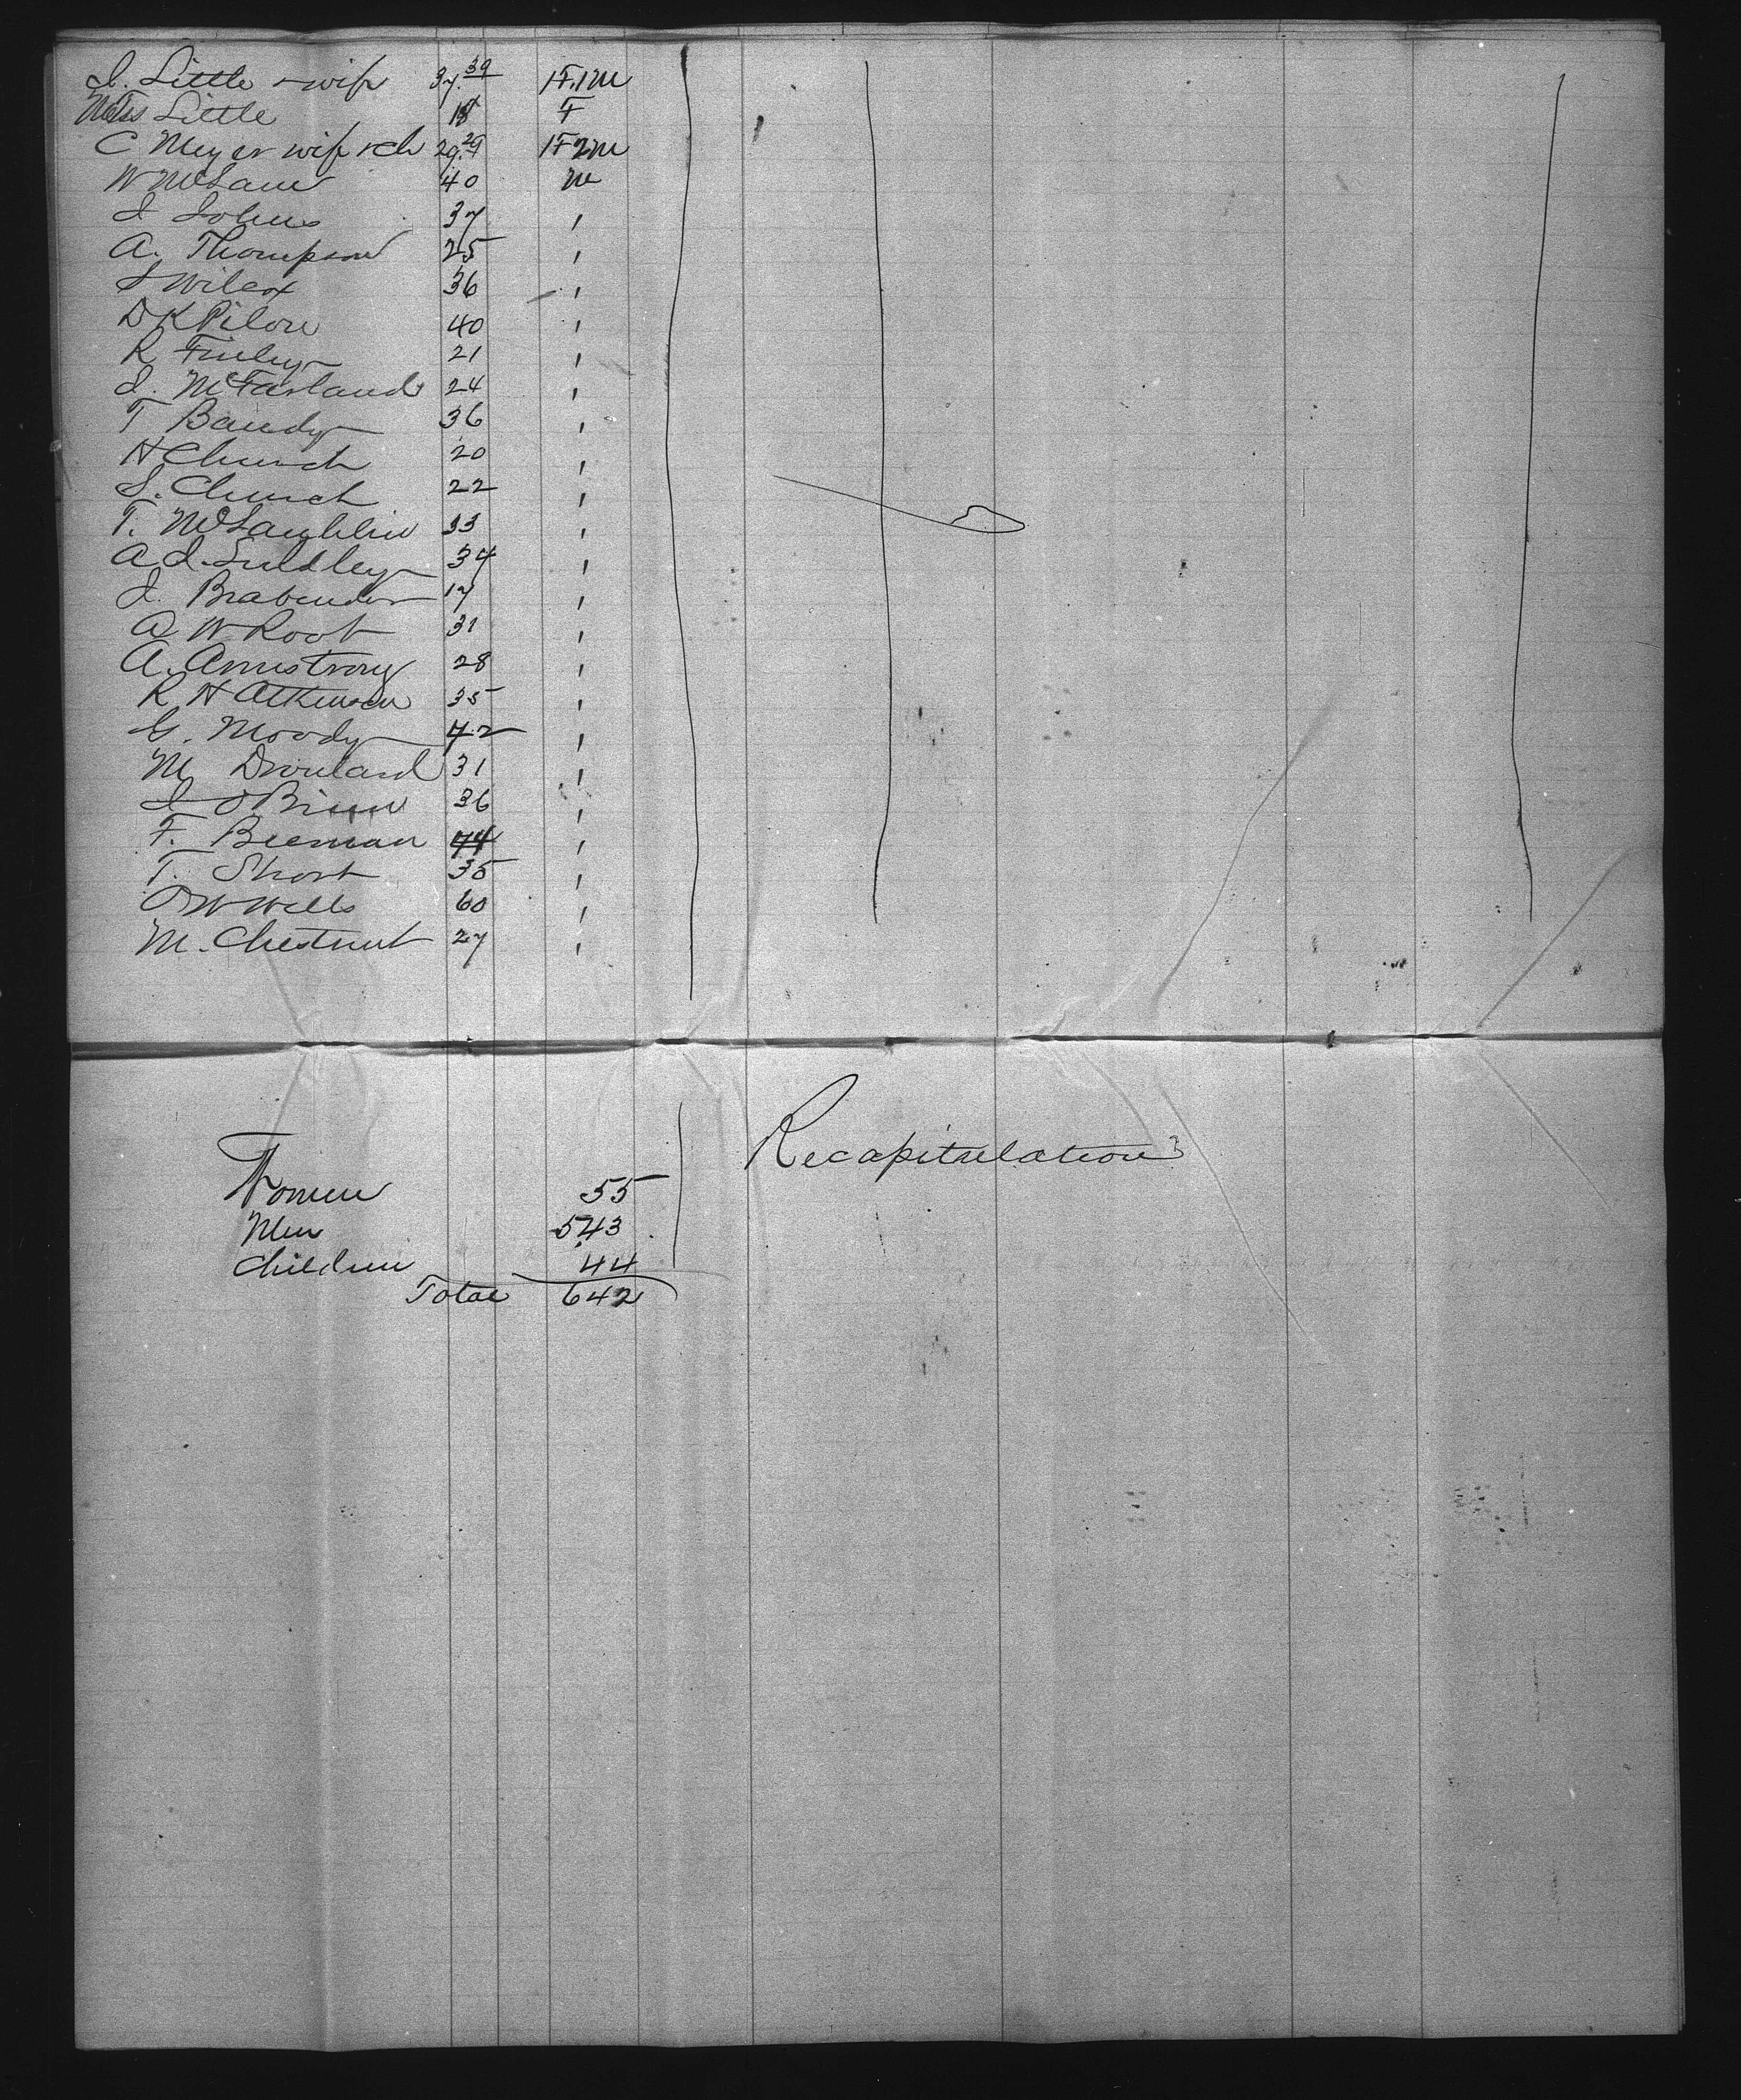 J. Little & wife 37.39 1F.1M
Miss Little 18 F
C Meyer wife & ch 29.29 1F2M
W McLane 40 M
J Johns 37 "
A. Thompson 25 "
S Wilcox 36 "
D K Pilore 40 "
R Finley 21 "
J. McFarland 24 "
T Bandy 36 "
H Church 20 "
S. Church 22 "
T. McLaughlin 33 "
A J. 34 "
J. Brabender 17 "
A W Root 31 "
A. Armstrong 28 "
R H Atkinson 35 "
G. Moody 42 "
M Drouland 31 "
J O'Brien 36 "
F. Beeman 44 "
T. Short 35 "
O W Wells 60 "
M. Chestnut 27 "
Recapitulation
Women 55
Men 543
Children 44
Total 642